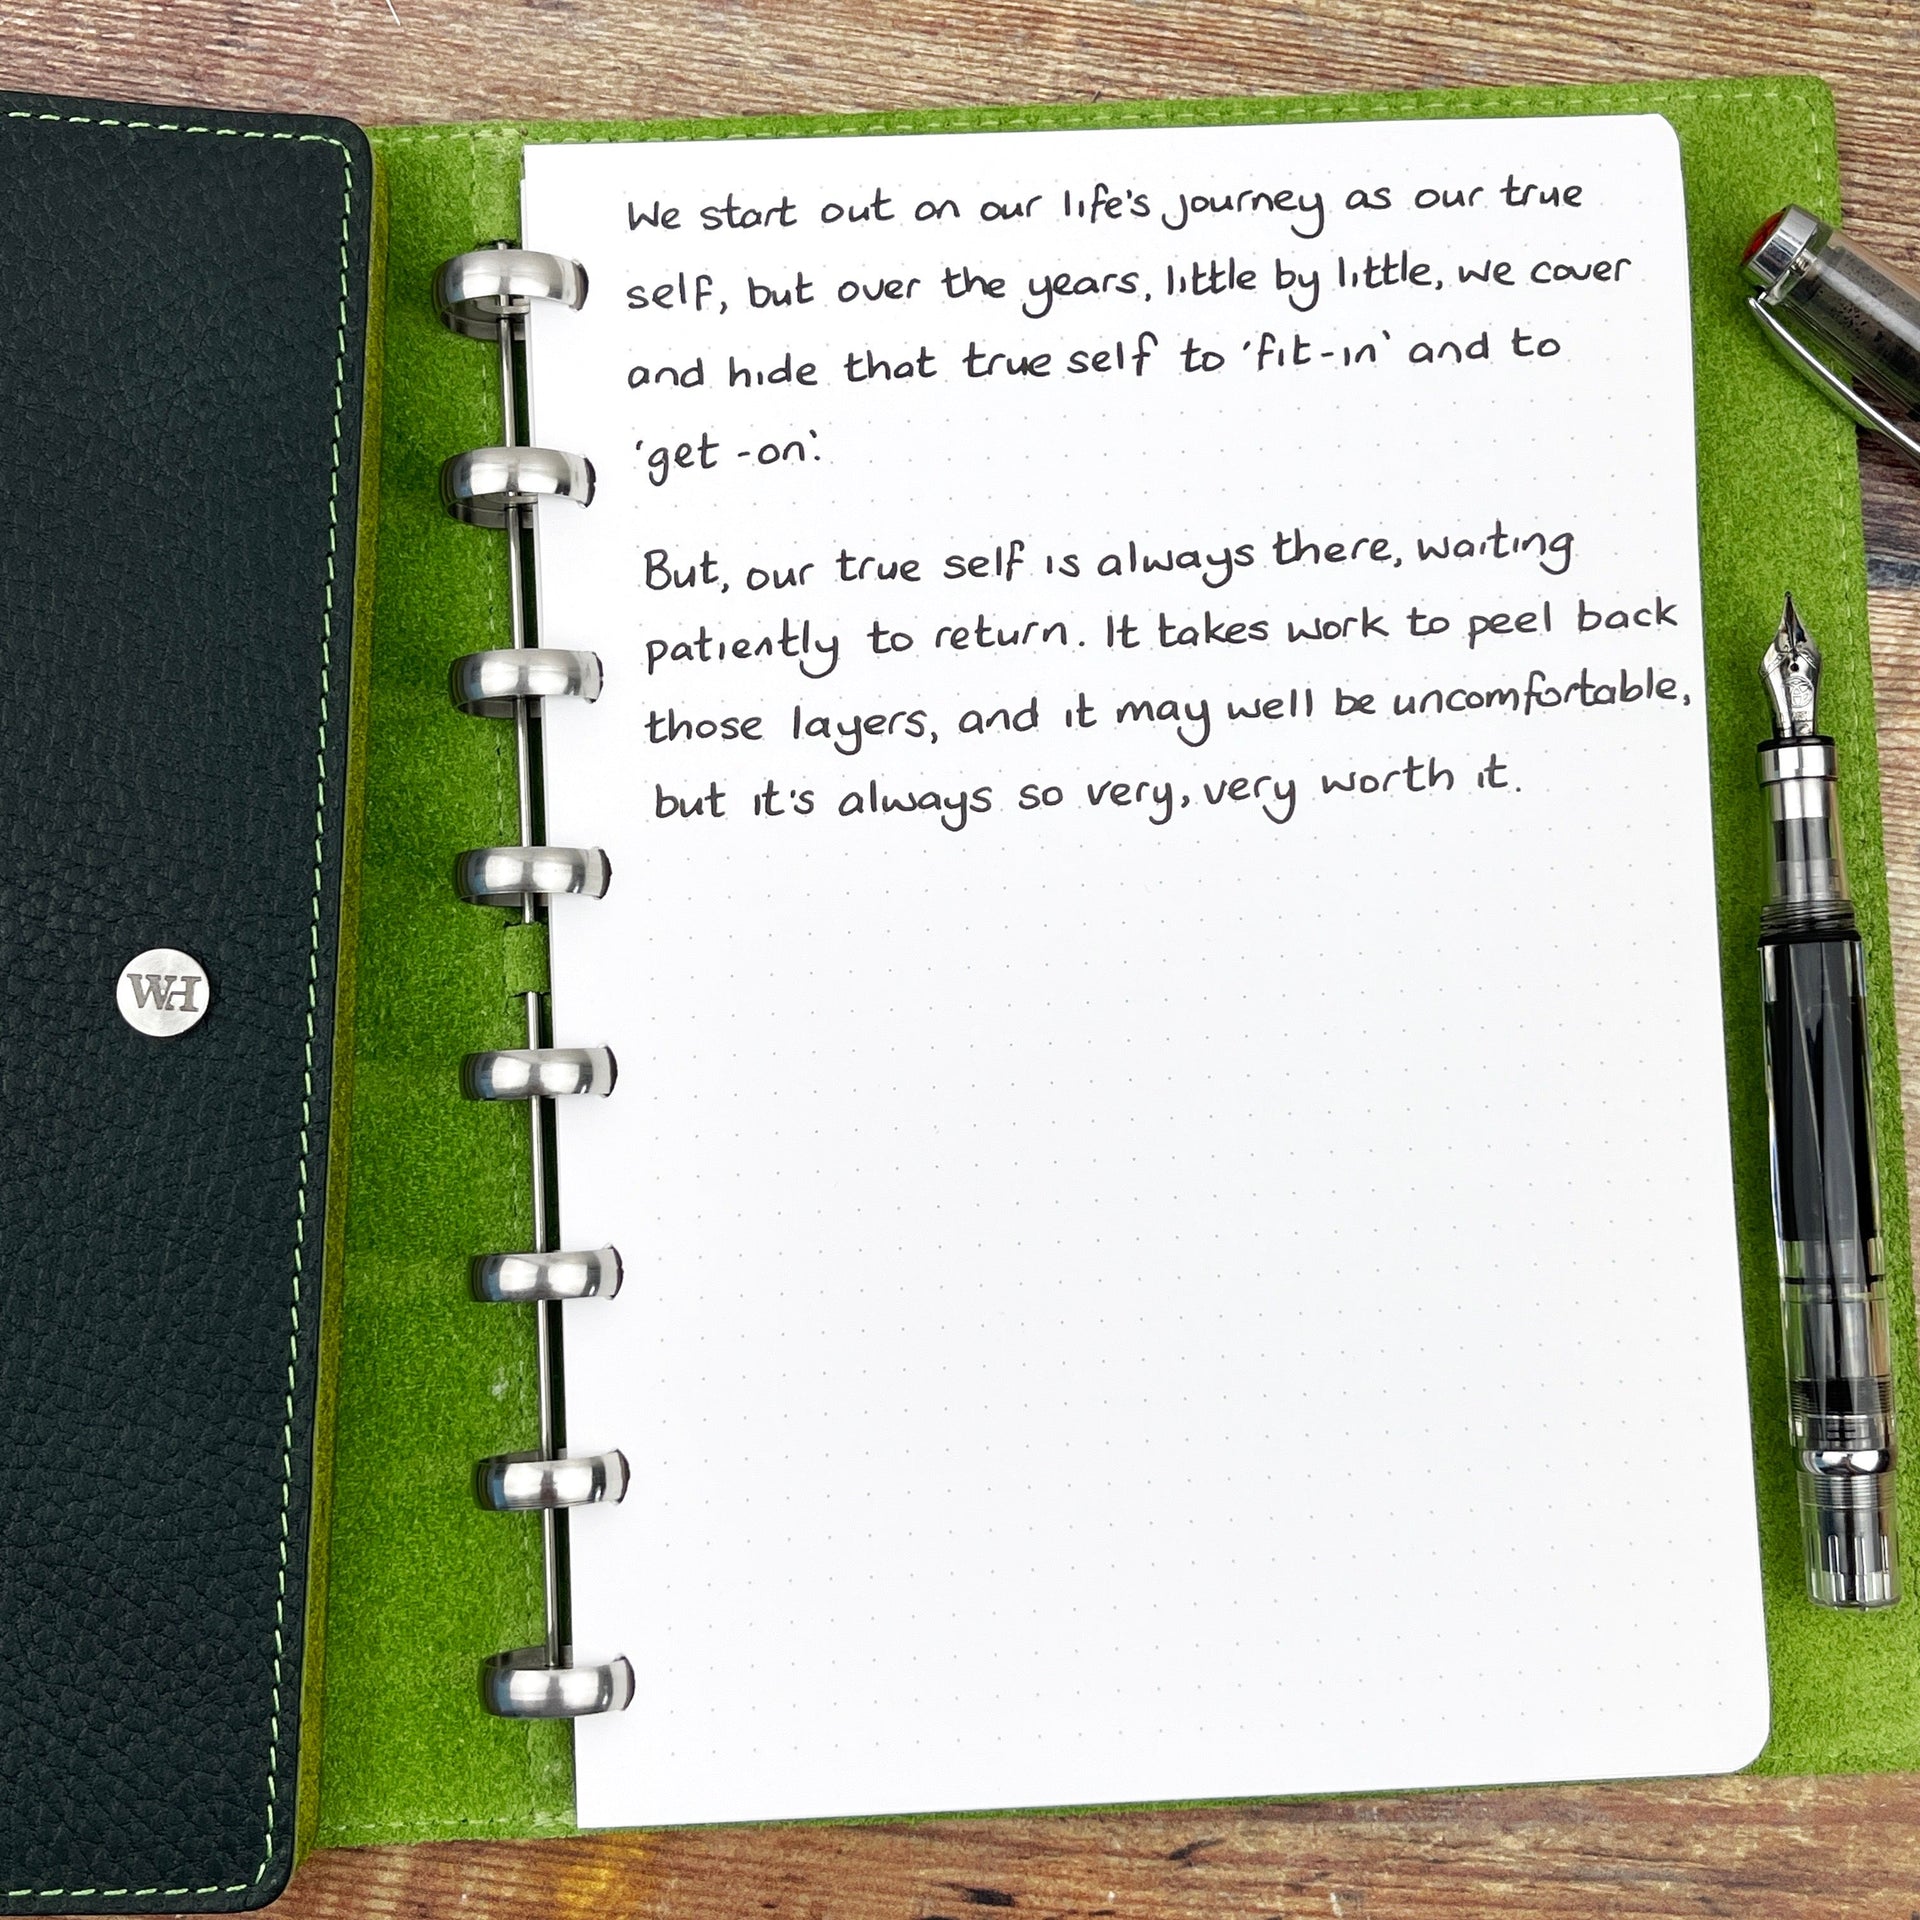 We start out on our life's journey as our true
self, but over the years, little by little, we cover
and hide that true self to 'fit-in' and to
'get-on'.
But, our true self is always there, waiting
patiently to return. It takes work to peel back
those layers, and it may well be uncomfortable,
but it's always so very, very worth it.
WH